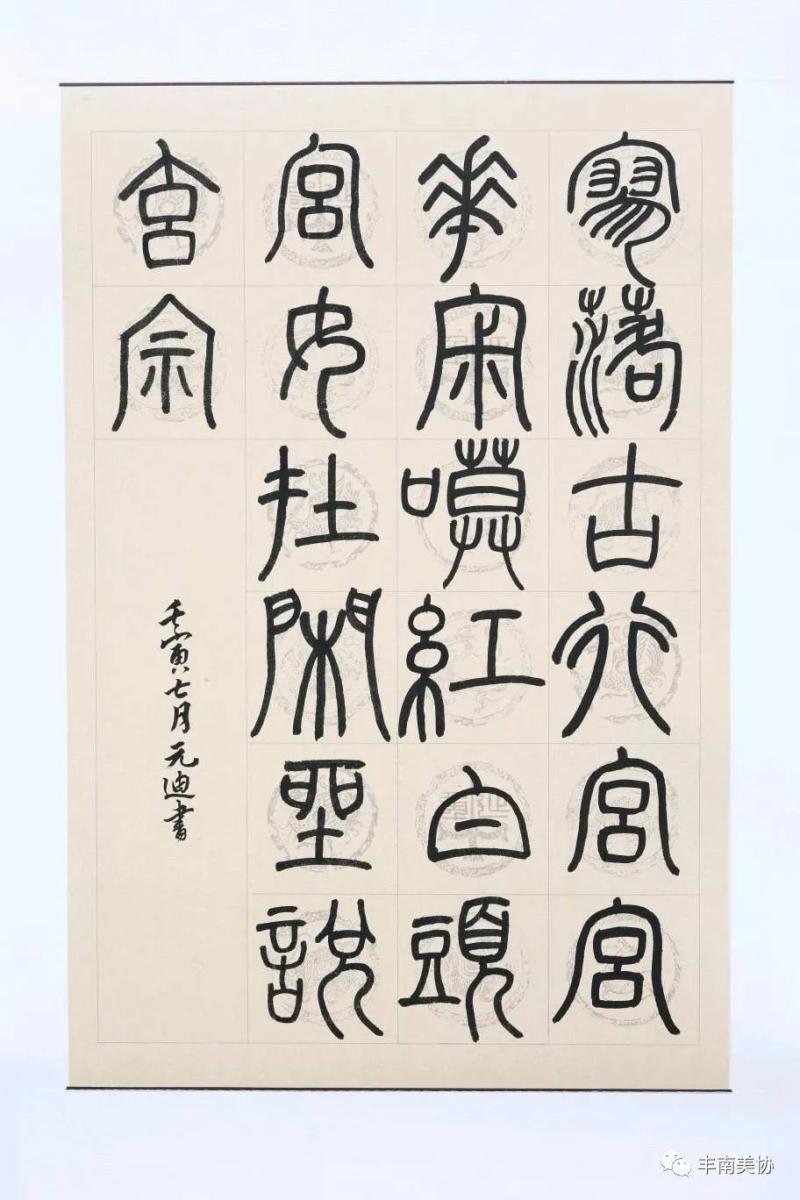 寥落古行宮宮
華寂嗼紅白頭
宮女在閑坐說
玄宗
壬寅七月元迪書
丰南美协